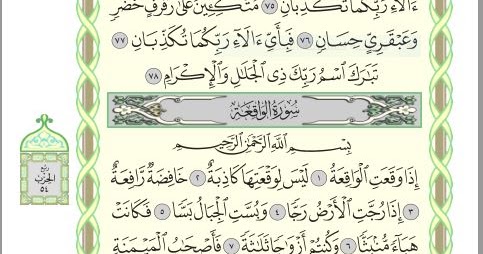 ءَالَآءِ رَبِّكُمَا تُكَذِّبَانِ ٧٥ مُتَّكِـِٔينَ عَلَىٰ رَفْرَفٍ خُضْرٍ
وَعَبْقَرِيٍّ حِسَانٍ ٧٦ فَبِأَيِّ ءَالَآءِ رَبِّكُمَا تُكَذِّبَانِ ٧٧
تَبَٰرَكَ ٱسْمُ رَبِّكَ ذِى ٱلْجَلَٰلِ وَٱلْإِكْرَامِ ٧٨
سُورَةُ الوَاقِعَةِ
بِسْمِ ٱللَّهِ ٱلرَّحْمَٰنِ ٱلرَّحِيمِ
إِذَا وَقَعَتِ ٱلْوَاقِعَةُ ١ لَيْسَ لِوَقْعَتِهَا كَاذِبَةٌ ٢ خَافِضَةٌ رَّافِعَةٌ
٣ إِذَا رُجَّتِ ٱلْأَرْضُ رَجًّا ٤ وَبُسَّتِ ٱلْجِبَالُ بَسًّا ٥ فَكَانَتْ
هَبَآءً مُّنۢبَثًّا ٦ وَكُنتُمْ أَزْوَٰجًا ثَلَٰثَةً ٧ فَأَصْحَٰبُ ٱلْمَيْمَنَةِ
ربع
الحزب
٥٤